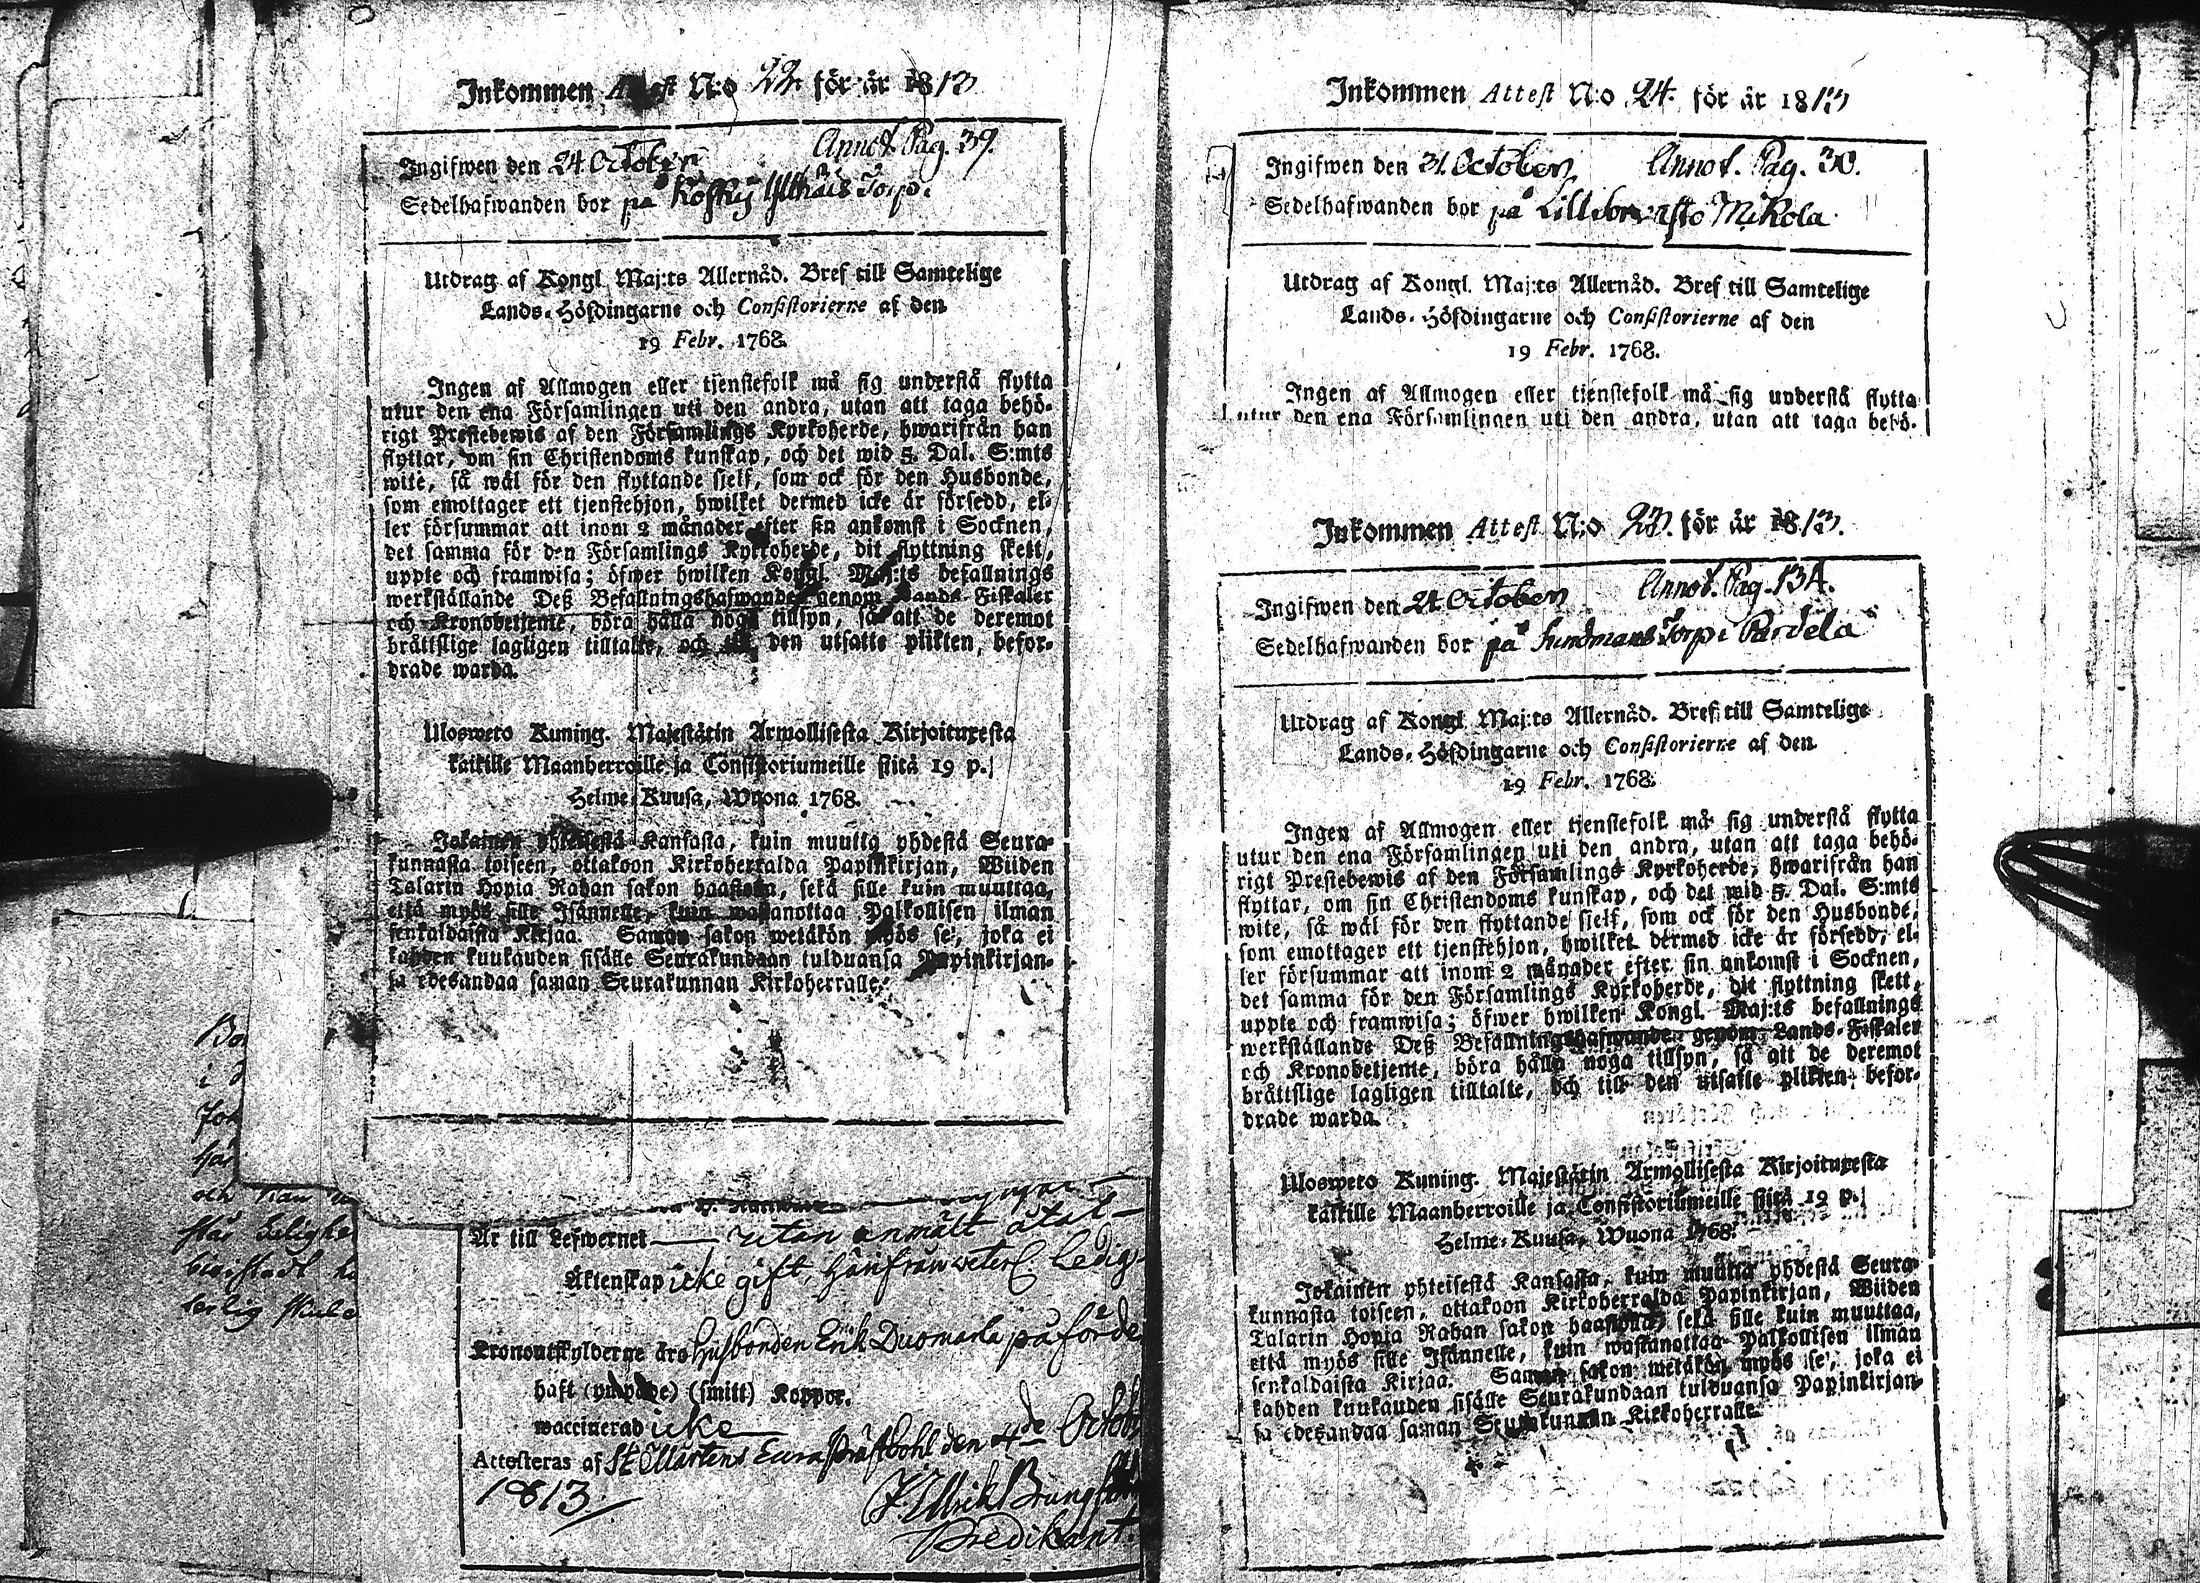 Inkommen Attest N:o 22. för år 1813
Ingifwen den 24 October Annot. Pag. 39.
Sedelhafwanden bor på Torp.
Utdrag af Kongl. Maj:ts Allernåd. Bref till Samtelige
Lands-Höfdingarne och Consistorierne af den
19 Febr. 1768.
Ingen af Allmogen eller tjenstefolk må sig understå flytta
utur den ena Församlingen uti den andra, utan att taga behö-
rigt Prestebewis af den Församlings Kyrkoherde, hwarifrån han
flyttar, om sin Christendoms kunskap, och det wid 5. Dal. S:mts
wite, så wäl för den flyttande sjelf, som ock för den Husbonde,
som emottager ett tjenstehjon, hwilket dermed icke är försedd, el-
ler försummar att inom 2 månader efter sin ankomst i Socknen,
det samma för den Församlings Kyrkoherde, dit flyttning skett,
uppte och framwisa; öfwer hwilken Kongl. Maj:ts befallnings
werkställande Deß Befallningshafwande genom Lands-Fiskaler
och Kronobetjente, böra hålla noga tillsyn, så att de deremot
bråttslige lagligen tilltalte, och till den utsatte plikten, befor-
drade warda.
Ulosweto Kuning. Majestätin Armollisesta Kirjoituxesta
kaikille Maanherroille ja Consistoriumeille siitä 19 p.
Helme-Kuusa, Wuona 1768.
Jokainen yhteisestä Kansasta, kuin muutta yhdestä Seura-
kunnasta toiseen, ottakoon Kirkoherralda Papinkirjan, Wiiden
Talarin Hopia Rahan sakon haastolla, sekä sille kuin muuttaa,
että myös sille Isännelle, kuin wastanottaa Palkollisen ilman
senkaldaista Kirjaa. Saman sakon wetäkön myös se, joka ei
kahden kuukauden sisälle Seurakundaan tulduansa Papinkirjan-
sa edesandaa saman Seurakunnan Kirkoherralle.
Är till Lefwernet utan anmält åtal
Äktenskap icke gift, härifrån Ledig
Kronoutskylderne äro Husbonden Erik
haft (smitt) Koppor.
waccinerad icke
Attesteras af St Mårtens Eura Prästbohl den 4de Octob
1813.
Predikant.
Inkommen Attest N:o 24. för år 1813
Ingifwen den 31. October Annot. Pag. 30.
Sedelhafwanden bor på Mikola
Utdrag af Kongl. Maj:ts Allernåd. Bref till Samtelige
Lands-Höfdingarne och Consistorierne af den
19 Febr. 1768.
Ingen af Allmogen eller tjenstefolk må sig understå flytta
utur den ena Församlingen uti den andra, utan att taga behö-
Inkommen Attest N:o 23. för år 1813.
Ingifwen den 24 October Annot. Pag. 134.
Sedelhafwanden bor på Sundmans Torp i Pardela
Utdrag af Kongl. Maj:ts Allernåd. Bref till Samtelige
Lands-Höfdingarne och Consistorierne af den
19 Febr. 1768.
Ingen af Allmogen eller tjenstefolk må sig understå flytta
utur den ena Församlingen uti den andra, utan att taga behö-
rigt Prestebewis af den Församlings Kyrkoherde, hwarifrån han
flyttar, om sin Christendoms kunskap, och det wid 5. Dal. S:mts
wite, så wäl för den flyttande sjelf, som ock för den Husbonde,
som emottager ett tjenstehjon, hwilket dermed icke är försedd, el-
ler försummar att inom 2 månader efter sin ankomst i Socknen,
det samma för den Församlings Kyrkoherde, dit flyttning skett,
uppte och framwisa; öfwer hwilken Kongl. Maj:ts befallnings
werkställande Deß Befallningshafwande genom Lands-Fiskaler
och Kronobetjente, böra hålla noga tillsyn, så att de deremot
bråttslige lagligen tilltalte, och till den utsatte plikten, befor-
drade warda.
Ulosweto Kuning. Majestätin Armollisesta Kirjoituxesta
kaikille Maanherroille ja Consistoriumeille siitä 19 p.
Helme-Kuusa, Wuona 1768.
Jokainen yhteisestä Kansasta, kuin muutta yhdestä Seura-
kunnasta toiseen, ottakoon Kirkoherralda Papinkirjan, Wiiden
Talarin Hopia Rahan sakon haastolla, sekä sille kuin muuttaa,
että myös sille Isännelle, kuin wastanottaa Palkollisen ilman
senkaldaista Kirjaa. Saman sakon wetäkön myös se, joka ei
kahden kuukauden sisälle Seurakundaan tulduansa Papinkirjan-
sa edesandaa saman Seurakunnan Kirkoherralle.